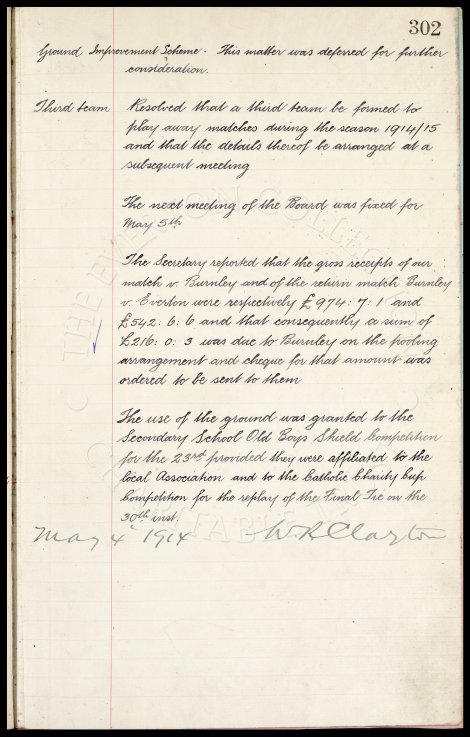 302
Ground Improvement Scheme. This matter was deferred for further
consideration.
Third team Resolved that a third team be formed to
play away matches during the season 1914/15
and that the details thereof be arranged at a
subsequent meeting
The next meeting of the Board was fixed for
May 5th
The Secretary reported that the gross receipts of our
match v. Burnley and of the return match Burnley
v. Everton were respectively £974:7:1 and
£542:6:6 and that consequently a sum of
£216:0:3 was due to Burnley on the pooling
arrangement and cheque for that amount was
ordered to be sent to them
The use of the ground was granted to the
Secondary School Old Boys Shield Competition
for the 23rd provided they were affiliated to the
local Association and to the Catholic Charity Cup
Competition for the replay of the Final Tie on the
30th inst.
May 4 1914 W R Clayton
THE EVERTON COLLECTION
CHARITABLE